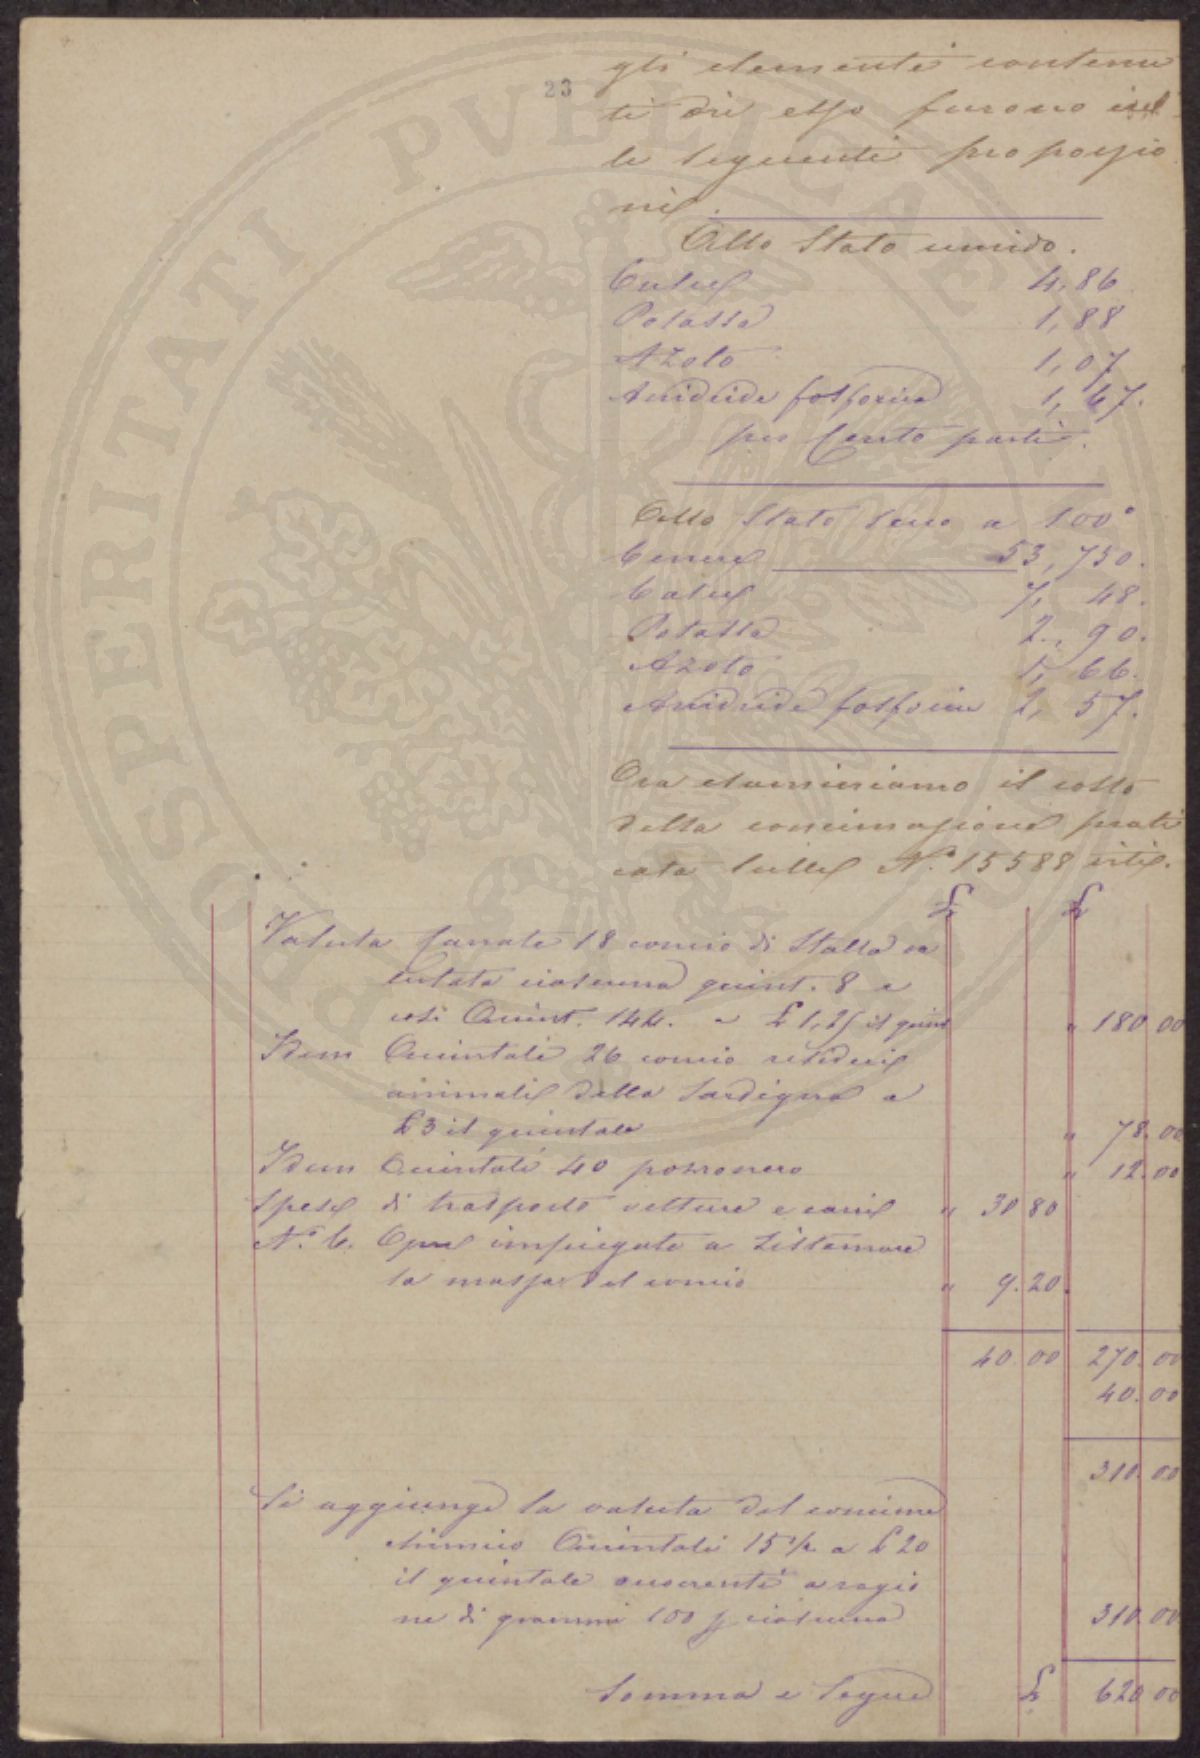 23
gli elementi contenu
ti in esso furono nel
le seguenti proporzio
ni.
Allo Stato umido.
Calce 4,86
Potassa 1,88
Azoto 1,07
Anidride fosforica 1,67.
per Cento parti.
Allo Stato secco a 100°
Cenere 53,750.
Calce 7,48.
Potassa 2,90.
Azoto 1,66.
Anidride fosforica 2,57.
Ora esaminiamo il costo
della concimazione prati
cata sulle N.° 15588 viti.
£ £
Valuta carrate 18 concio di Stalla va
lutata ciascuna quint. 8 e
così Quint. 144. a £ 1,25 il quint " 180 00
Idem Quintali 26 concio residui
animali della Sardigna a
£ 3 il quintale " 78.00
Idem Quintali 40 pozzonero " 12.00
Spese di trasporto vetture e carri " 30 80
N.° 6. Opre impiegate a sistemare
la massa del concio " 9.20.
40 00 270.00
40.00
310.00
Si aggiunge la valuta del concime
chimico Quintali 15 ½ a £ 20
il quintale occorrenti a ragio
ne di grammi 100 p ciascuna 310.00
Somma e Segue £ 620 00
PROSPERITATI PVBLICAE